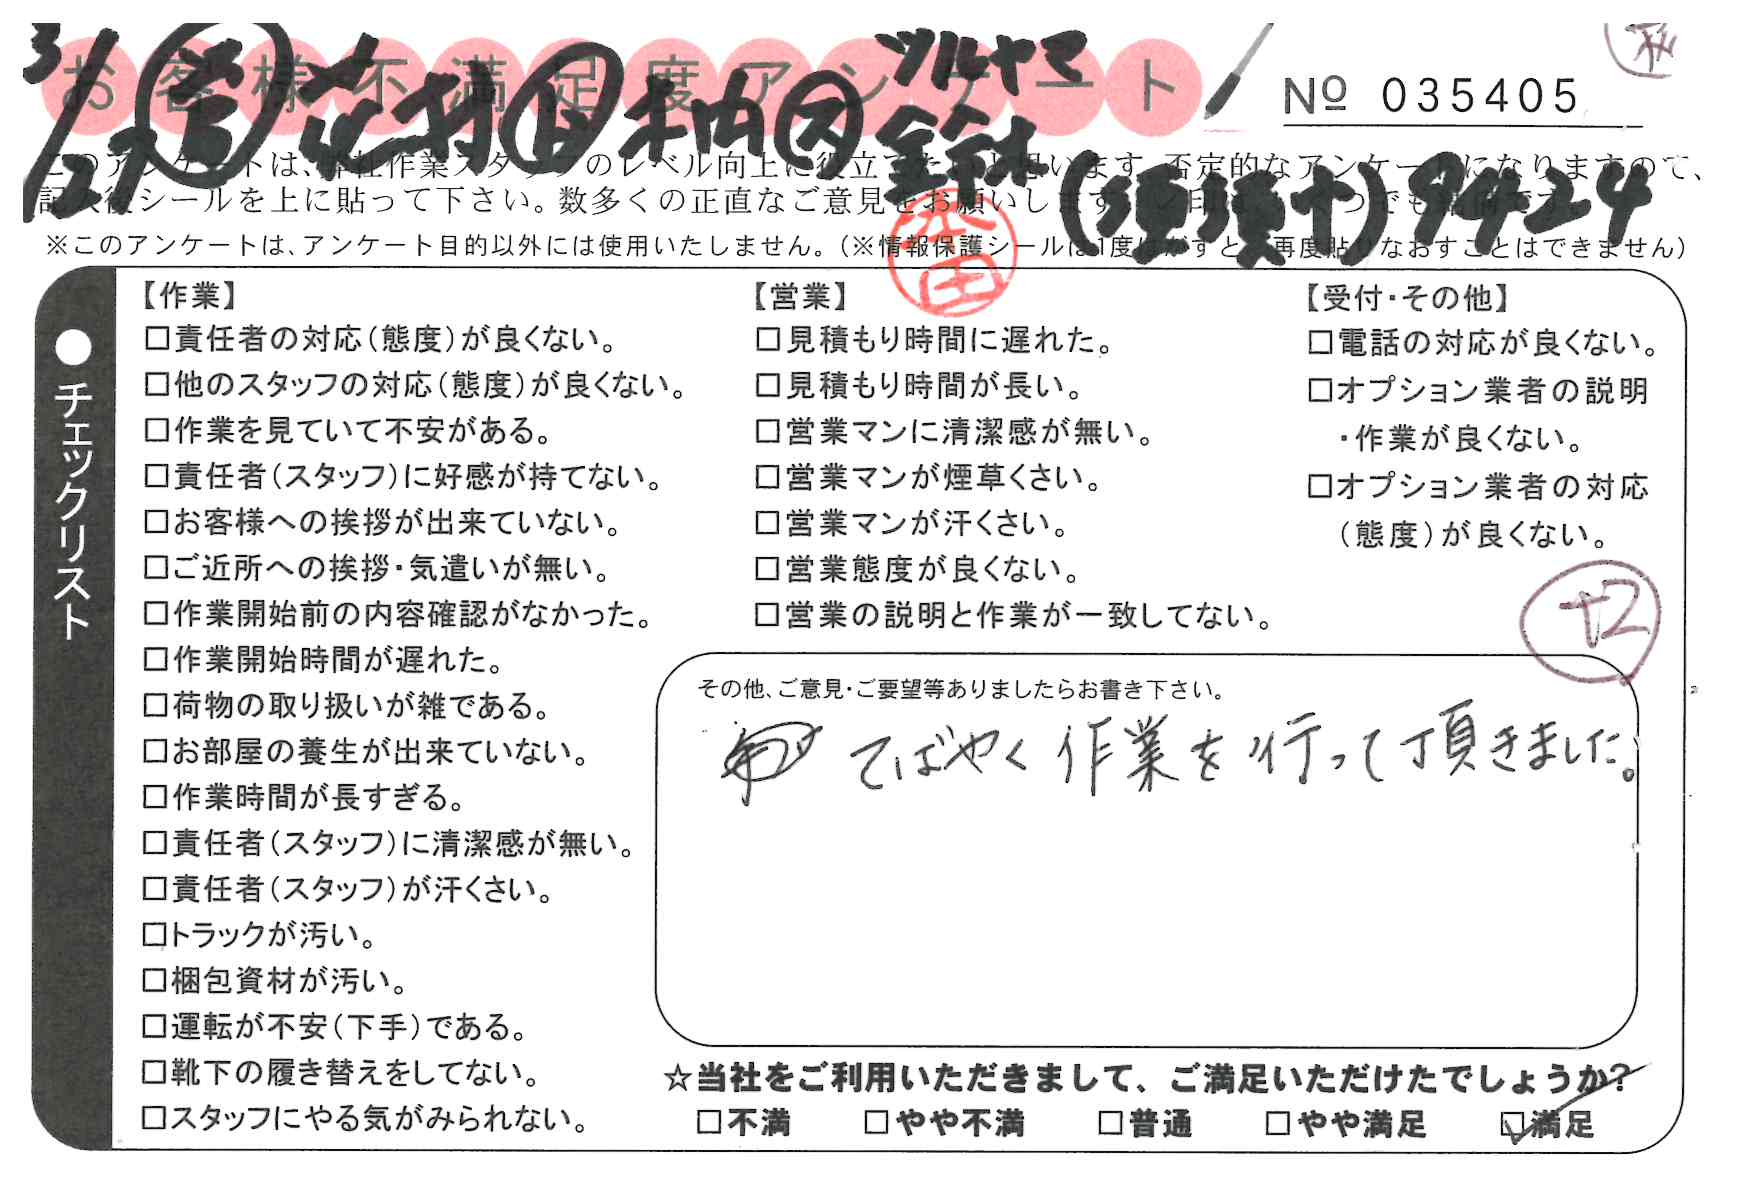 お客様不満足度アンケート
№ 035405
3/12
ツルヤマ
9424
このアンケートは、弊社作業スタッフのレベル向上に役立てたいと思います。否定的なアンケートになりますので、
記入後シールを上に貼って下さい。数多くの正直なご意見をお願いします
※このアンケートは、アンケート目的以外には使用いたしません。(※情報保護シールは1度はがすと、再度貼りなおすことはできません)
●チェックリスト
【作業】
□責任者の対応(態度)が良くない。
□他のスタッフの対応(態度)が良くない。
□作業を見ていて不安がある。
□責任者(スタッフ)に好感が持てない。
□お客様への挨拶が出来ていない。
□ご近所への挨拶・気遣いが無い。
□作業開始前の内容確認がなかった。
□作業開始時間が遅れた。
□荷物の取り扱いが雑である。
□お部屋の養生が出来ていない。
□作業時間が長すぎる。
□責任者(スタッフ)に清潔感が無い。
□責任者(スタッフ)が汗くさい。
□トラックが汚い。
□梱包資材が汚い。
□運転が不安(下手)である。
□靴下の履き替えをしてない。
□スタッフにやる気がみられない。
【営業】
□見積もり時間に遅れた。
□見積もり時間が長い。
□営業マンに清潔感が無い。
□営業マンが煙草くさい。
□営業マンが汗くさい。
□営業態度が良くない。
□営業の説明と作業が一致してない。
【受付・その他】
□電話の対応が良くない。
□オプション業者の説明
・作業が良くない。
□オプション業者の対応
(態度)が良くない。
+2
その他、ご意見・ご要望等ありましたらお書き下さい。
てばやく作業を行って頂きました。
☆当社をご利用いただきまして、ご満足いただけたでしょうか?
□不満 □やや不満 □普通 □やや満足 ☑満足